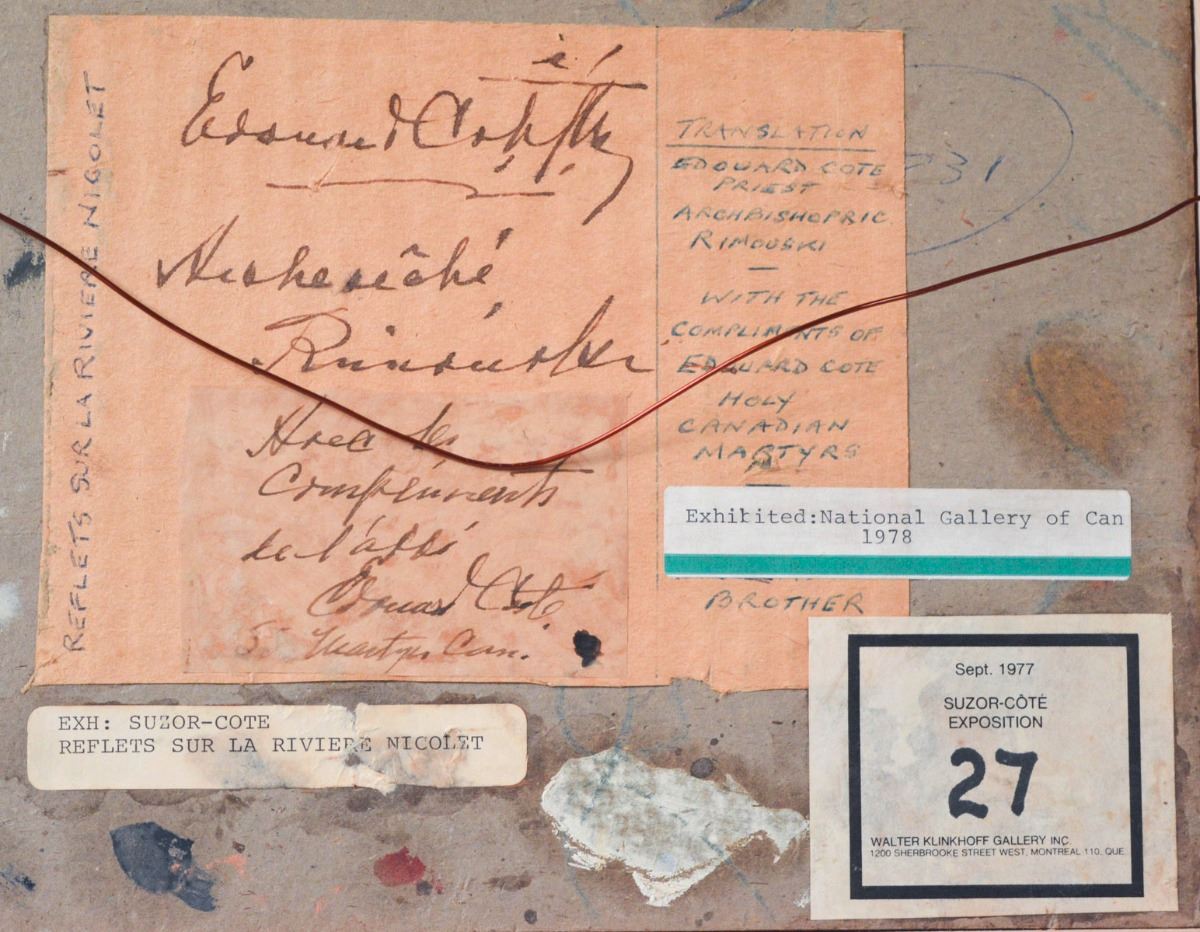 REFLETS SUR LA RIVIERE NICOLET
Edouard Coté ptre
Archevêché
Rimouski
Avec les
Compliments
de l'abbé
Edouard Côté.
Sts Martyrs Can.
TRANSLATION
EDOUARD COTE
PRIEST
ARCHBISHOPRIC
RIMOUSKI
—
WITH THE
COMPLIMENTS OF
EDOUARD COTE
HOLY
CANADIAN
MARTYRS
BROTHER
731
Exhibited:National Gallery of Can
1978
EXH: SUZOR-COTE
REFLETS SUR LA RIVIERE NICOLET
Sept. 1977
SUZOR-CÔTÉ
EXPOSITION
27
WALTER KLINKHOFF GALLERY INC.
1200 SHERBROOKE STREET WEST, MONTREAL 110, QUE.